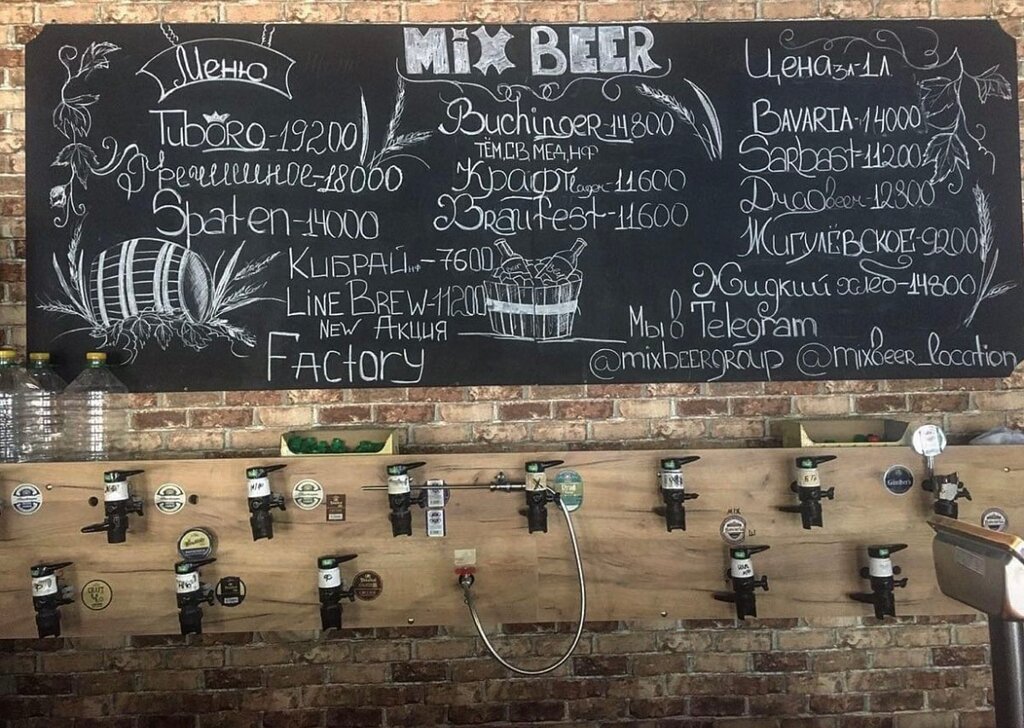 Меню
MIX BEER
Цена за 1л
Tuborg-19200
Гречишное-18000
Spaten-14000
КИБРАЙ нф-7600
LINE BREW-11200
NEW АКЦИЯ
Factory
Buchinger-14800
ТЁМ,СВ,МЕД,НФ
Крафт Lager-11600
Braufest-11600
BAVARIA-14000
Sarbast-11200
Дудовеен-12800
ЖИГУЛЁВСКОЕ-9200
Жидкий хлеб-14800
Мы в Telegram
@mixbeergroup @mixbeer_location